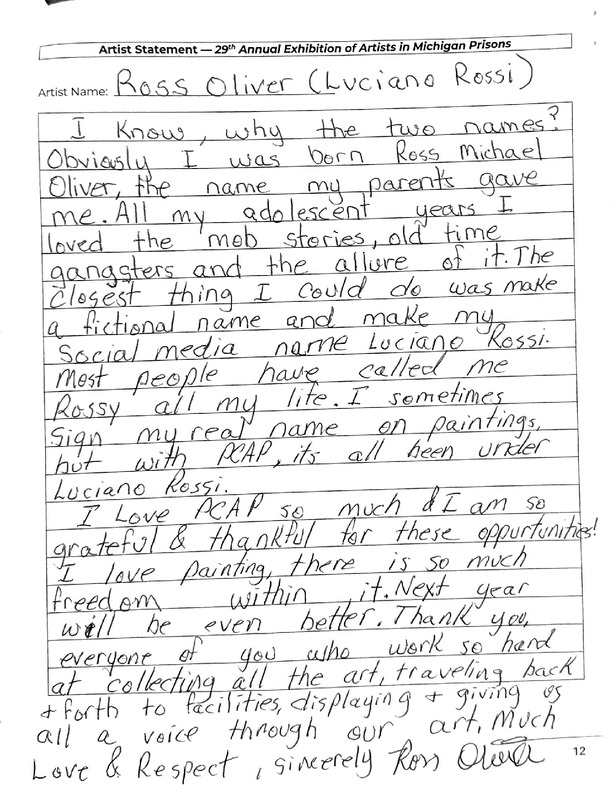 Artist Statement — 29th Annual Exhibition of Artists in Michigan Prisons
Artist Name: Ross Oliver (Luciano Rossi)
I Know, why the two names?
Obviously I was born Ross Michael
Oliver, the name my parents gave
me. All my adolescent years I
loved the mob stories, old time
gangsters and the allure of it. The
Closest thing I could do was make
a fictional name and make my
Social media name Luciano Rossi.
Most people have called me
Rossy all my life. I sometimes
Sign my real name on paintings,
but with PCAP, its all been under
Luciano Rossi.
I Love PCAP so much & I am so
grateful & thankful for these oppurtunities!
I love painting, there is so much
freedom within it. Next year
will be even better. Thank you,
everyone of you who work so hard
at collecting all the art, traveling back
+ forth to facilities, displaying + giving us
all a voice through our art. Much
Love & Respect, sincerely Ross Oliver
12